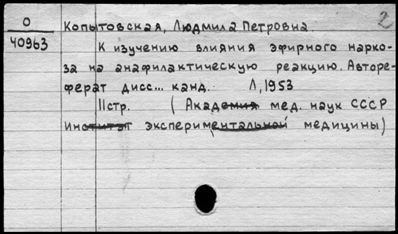 О
40963
Копытовская, Людмила Петровна
2
К изучению влияния эфирного нарко-
за на анафилактическую реакцию. Авторе-
ферат дисс... канд. Л, 1953
11стр. (Академия мед. наук СССР
Институт экспериментальной медицины)